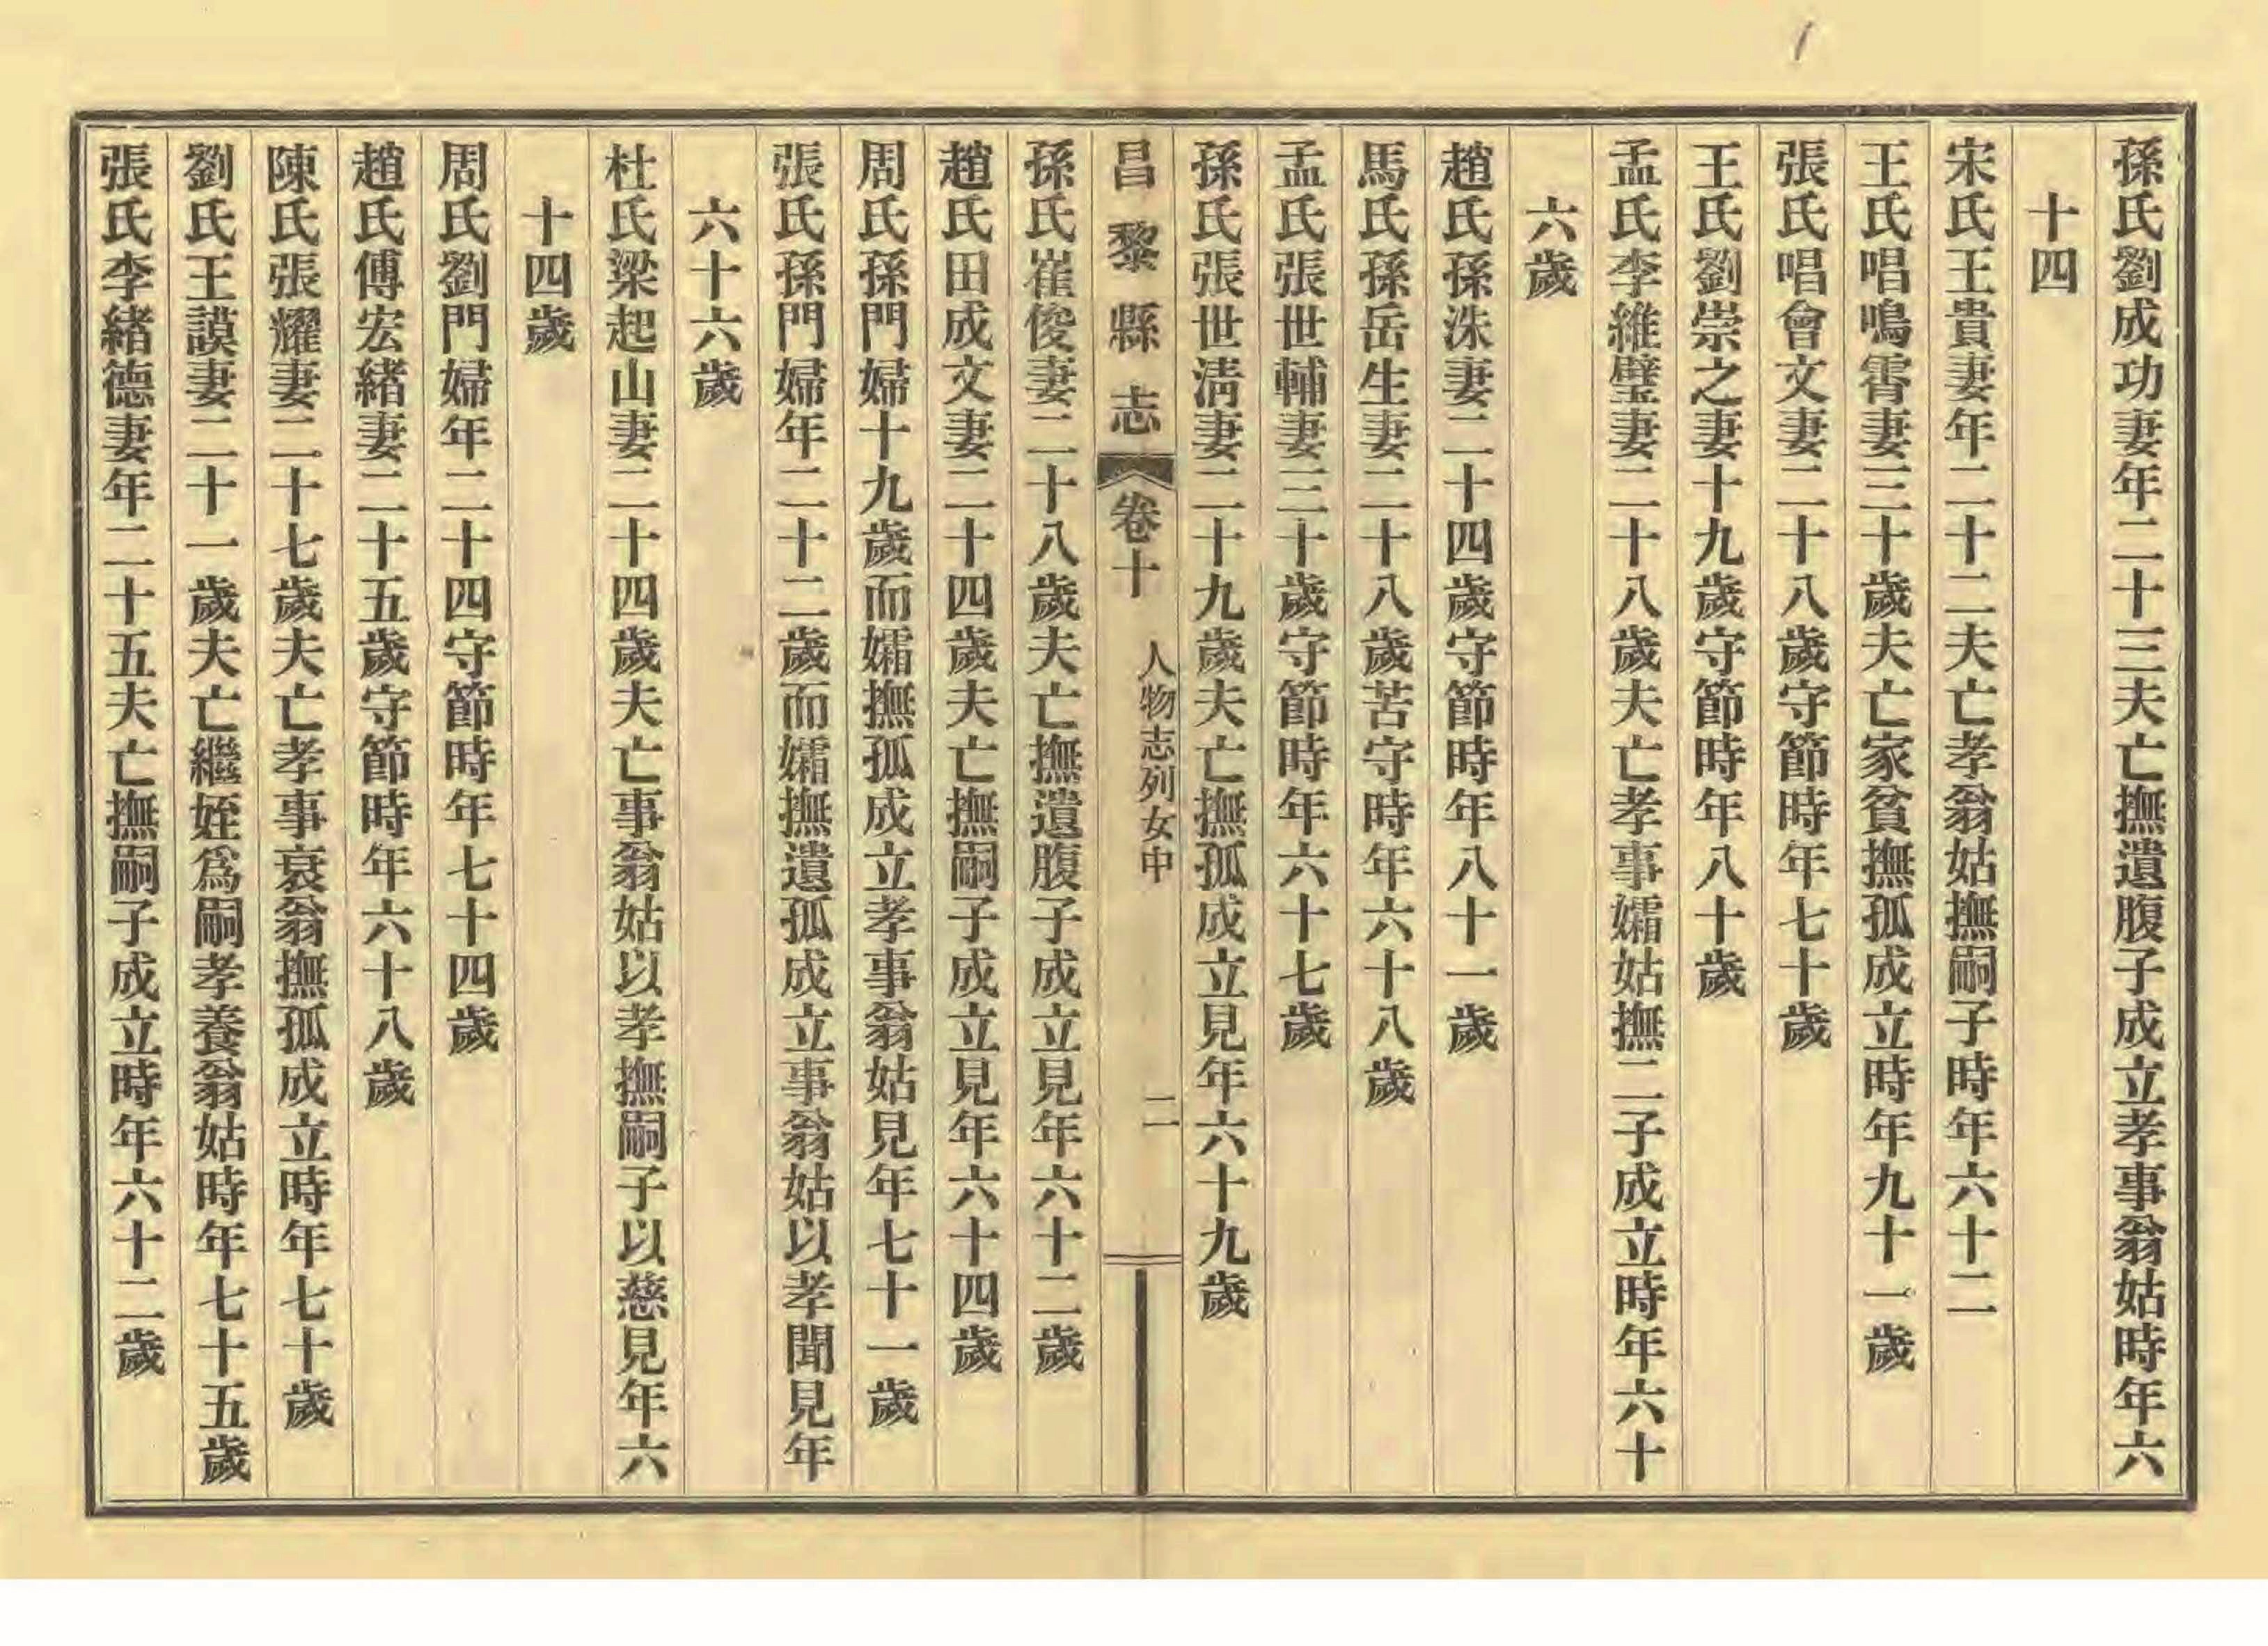 孫氏劉成功妻年二十三夫亡撫遺腹子成立孝事翁姑時年六
十四
宋氏王貴妻年二十二夫亡孝翁姑撫嗣子時年六十二
王氏唱鳴霄妻三十歲夫亡家貧撫孤成立時年九十一歲
張氏唱會文妻二十八歲守節時年七十歲
王氏劉崇之妻十九歲守節時年八十歲
孟氏李維璧妻二十八歲夫亡孝事孀姑撫二子成立時年六十
六歲
趙氏孫洙妻二十四歲守節時年八十一歲
馬氏孫岳生妻二十八歲苦守時年六十八歲
孟氏張世輔妻三十歲守節時年六十七歲
孫氏張世淸妻二十九歲夫亡撫孤成立見年六十九歲
昌黎縣志 卷十 人物志列女中 二
孫氏崔俊妻二十八歲夫亡撫遺腹子成立見年六十二歲
趙氏田成文妻二十四歲夫亡撫嗣子成立見年六十四歲
周氏孫門婦十九歲而孀撫孤成立孝事翁姑見年七十一歲
張氏孫門婦年二十二歲而孀撫遺孤成立事翁姑以孝聞見年
六十六歲
杜氏梁起山妻二十四歲夫亡事翁姑以孝撫嗣子以慈見年六
十四歲
周氏劉門婦年二十四守節時年七十四歲
趙氏傅宏緒妻二十五歲守節時年六十八歲
陳氏張耀妻二十七歲夫亡孝事衰翁撫孤成立時年七十歲
劉氏王謨妻二十一歲夫亡繼姪爲嗣孝養翁姑時年七十五歲
張氏李緒德妻年二十五夫亡撫嗣子成立時年六十二歲